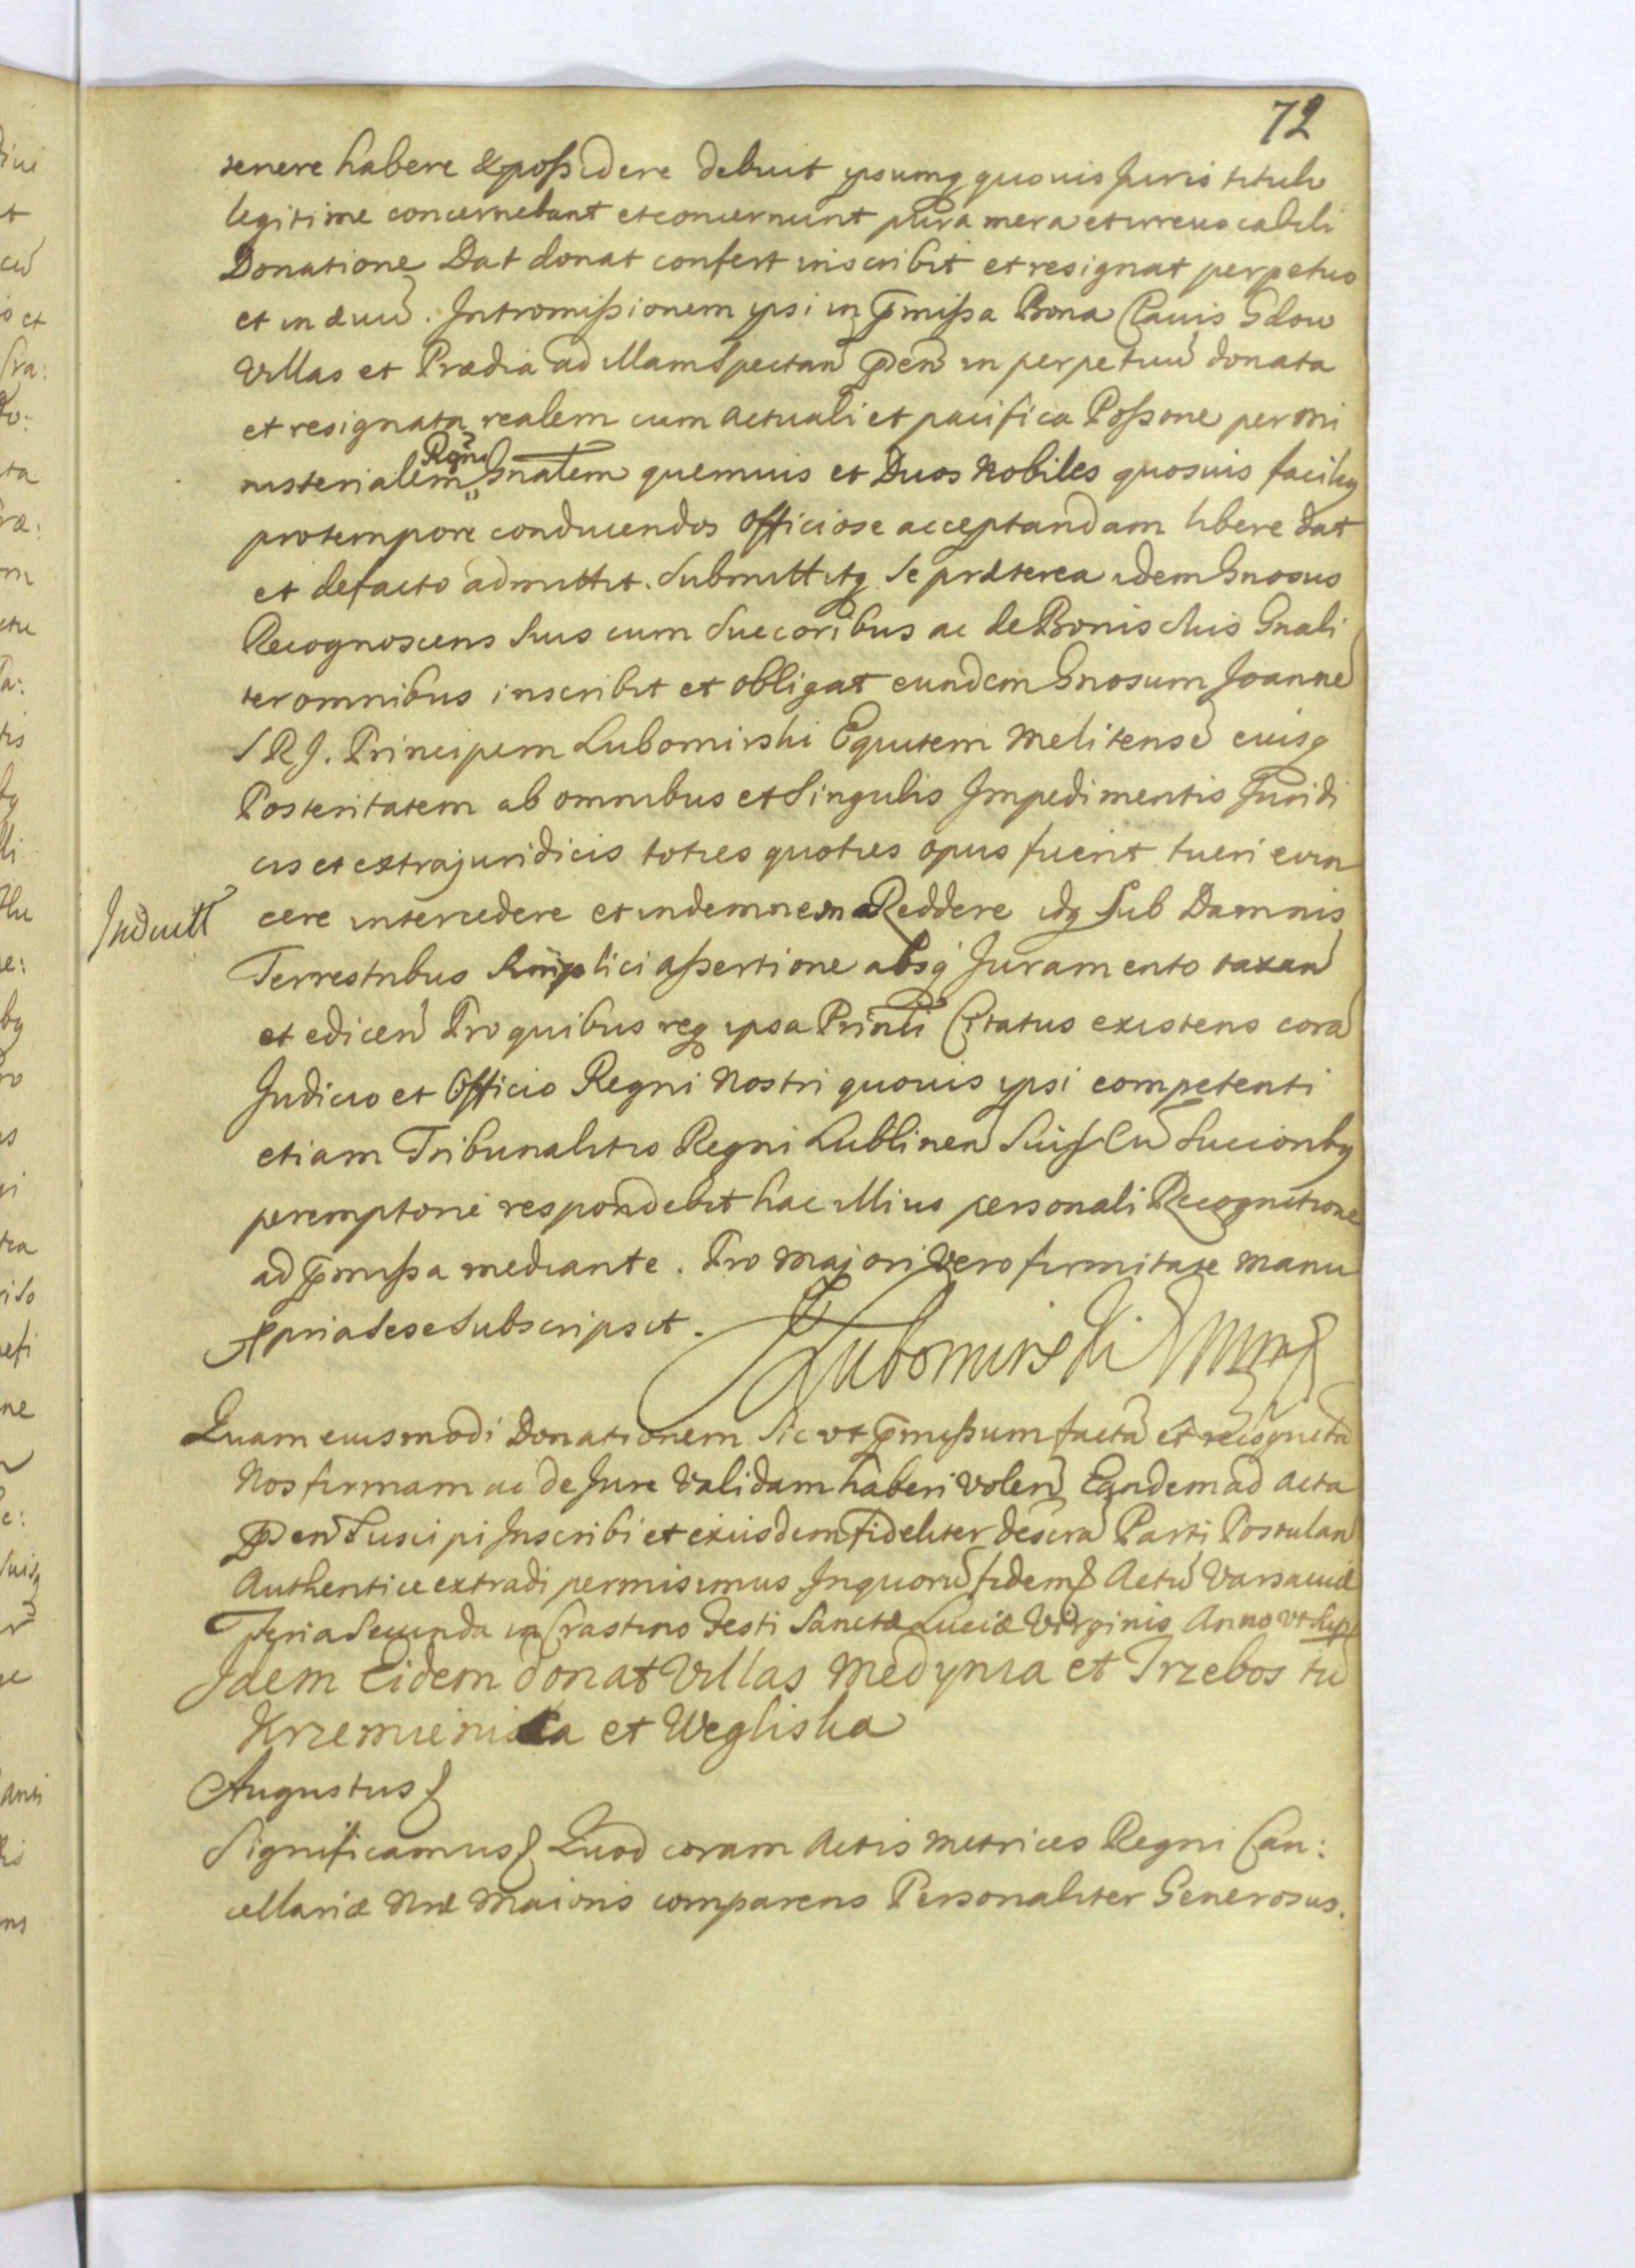 72
tenere habere & possidere debuit ipsumq quouis Juris titulo
legitime concernebant et concernunt pura mera et irreuocabili
Donatione Dat donat confert inscribit et resignat perpetuo
et in æuū. Intromissionem ipsi in p̄missa Bona Clauis Głow
Villas et Prædia ad illam Spectan̄ p̄n̄ in perpetuū donata
et resignata realem cum actuali et pacifica Possone per mi
nisterialem Regni Gnalem quemuis et Duos Nobiles quosuis facilq
protempore conducendos officiose acceptandam libere dat
et defacto admittit. Submittitq se præterea idem Gnosus
Recognoscens suis cum Succoribus ac de Bonis suis Gnali
ter omnibus inscribit et obligat eundem Gnosum Joannē
S R J. Principem Lubomirski Equitem Melitensē eiusq
Posteritatem ab omnibus et Singulis Impedimentis Juridi
cis et extrajuridicis toties quoties opus fuerit tueri euin
cere intercedere et indemnem Reddere idq Sub Damnis
Terrestribus simplici assertione absq Juramento taxan̄
et edicen̄ Pro quibus req ipsa Prinli Citatus existens corā
Judicio et Officio Regni Nostri quouis ipsi competenti
etiam Tribunalitio Regni Lublinen̄ Suis cū Succonbq
peremptorie respondebit hac illius personali Recognitione
ad p̄missa mediante. Pro majori vero firmitate manu
ppria sese subscripsit. Lubomirski mp
Quam eiusmodi Donationem sic vt p̄missum factā et recognitā
Nos firmam ac de Jure Validam haberi volen̄ Eandem ad acta
p̄n̄ Suscipi Inscribi et exiusdem fideliter descrā Parti Postulan̄
Authentice extradi permisimus Inquorū fidem Actū Varsauiæ
Feria Secunda in Crastino Festi Sanctæ Luciæ Virginis Anno vt sup
Idem Eidem donat Villas Medynia et Trzebos tū
Krzemienica et Wegliska
Augustus
Significamus Quod coram Actis Metrices Regni Can:
cellariæ Nræ Maioris comparens Personaliter Generosus.